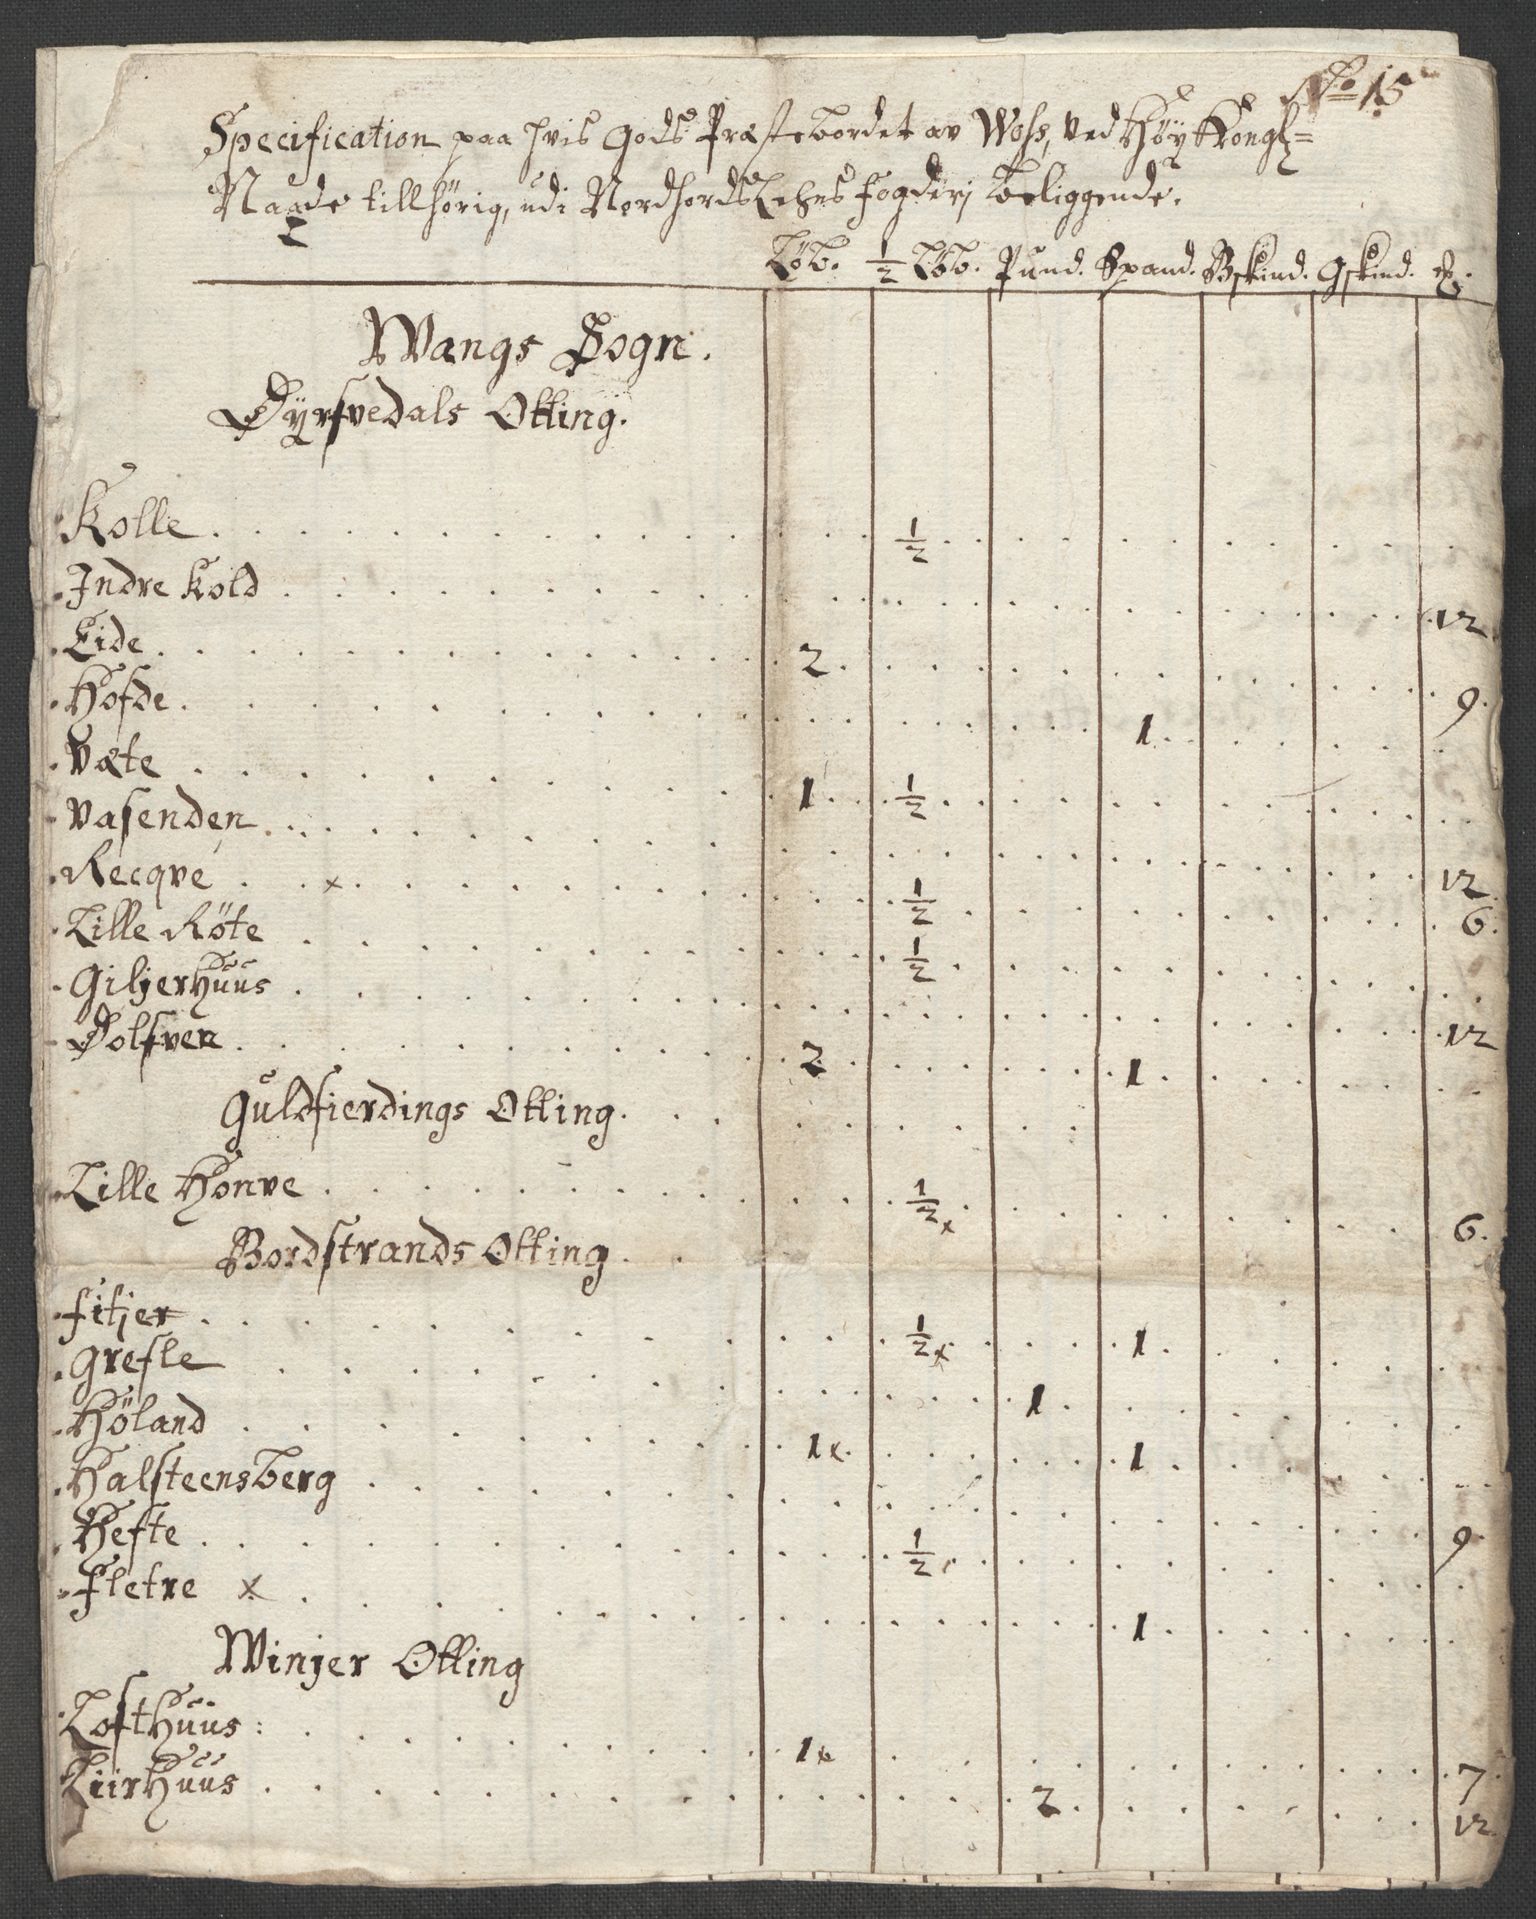 No 15
Specification paa hvis Gods Præstebordet av Woss, ved Höy Kongl=
Naade tillhörig, udi NordhordsLehns fogderj beliggende.
Løb. 1/2 Løb. Pund. Spand. Bskind. Gskind. ℔.
Wangs Sogn.
Dyrfvedals Otting.
Kolle . . . 1/2
Indre Kold . . . 12
Eide . . . 2 . . . 9.
Hofde . . . 1
Væte . . . 1 . . 1/2
Vasenden . . . 12
Recqve . . x . . 1/2 . . . 6.
Lille Röte . . . 1/2
Giljerhuus . . . 12
Dolfven . . . 2 . . . 1
Guldfierdings Otting.
Lille Honve . . . 1/2 x . . . 6.
Bordstrands Otting.
fitjer . . . 1/2 x . . . 1
Grefle . . . 1
Höland . . . 1 x . . . 1
Halsteensberg . . . 9
Hefte . . . 1/2
fletre x . . . 1
Winjer Otting
Lofthuus : . . . 1 x . . . 7
Liirhuus . . . 2 . . . 12